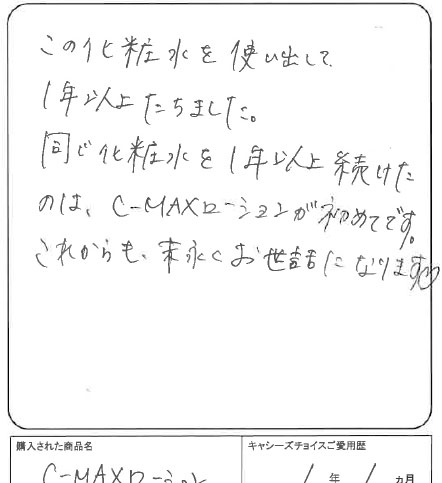 この化粧水を使い出して
1年以上たちました。
同じ化粧水を1年以上続けた
のは、C-MAXローションが初めてです。
これからも、末永くお世話になります♡
購入された商品名
キャシーズチョイスご愛用歴
C-MAXローション
1年1カ月